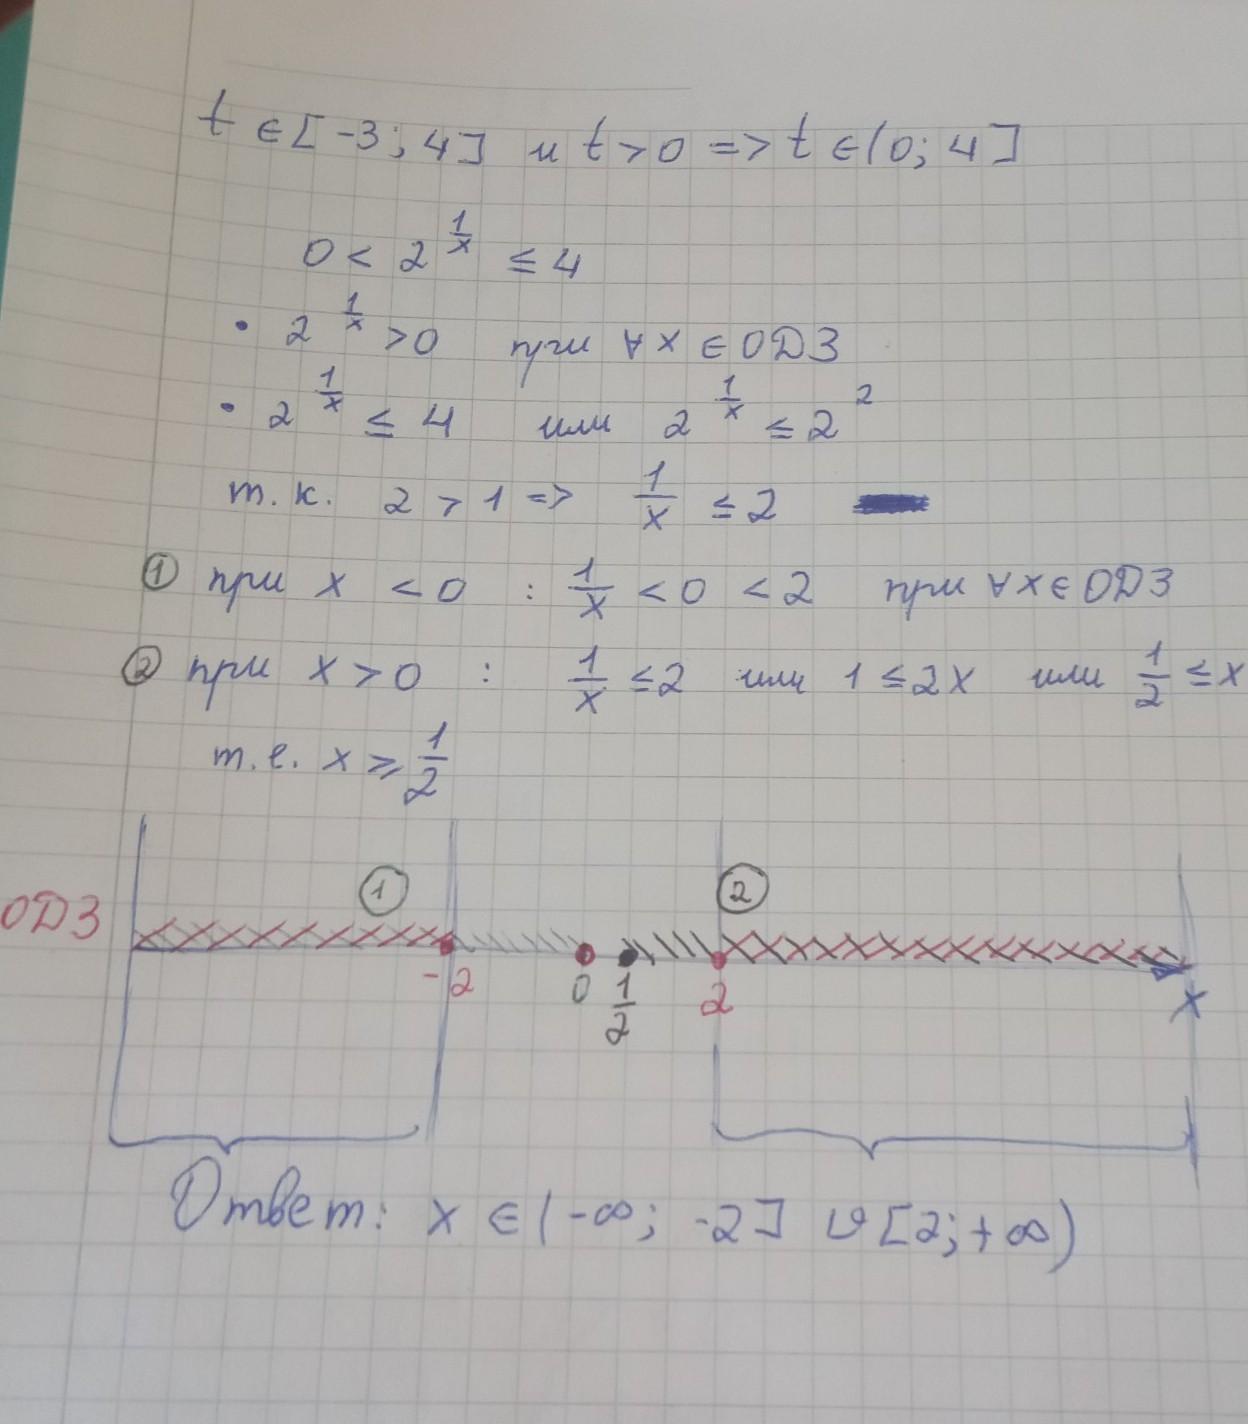 t ∈ [-3; 4] и t > 0 => t ∈ (0; 4]
0 < 2^(1/x) ≤ 4
• 2^(1/x) > 0 при ∀ x ∈ ОДЗ
• 2^(1/x) ≤ 4 или 2^(1/x) ≤ 2^2
т.к. 2 > 1 => 1/x ≤ 2
① при x < 0 : 1/x < 0 < 2 при ∀ x ∈ ОДЗ
② при x > 0 : 1/x ≤ 2 или 1 ≤ 2x или 1/2 ≤ x
т.е. x ≥ 1/2
① ②
ОДЗ
-2 0 1/2 2 x
Ответ: x ∈ (-∞; -2] ∪ [2; +∞)